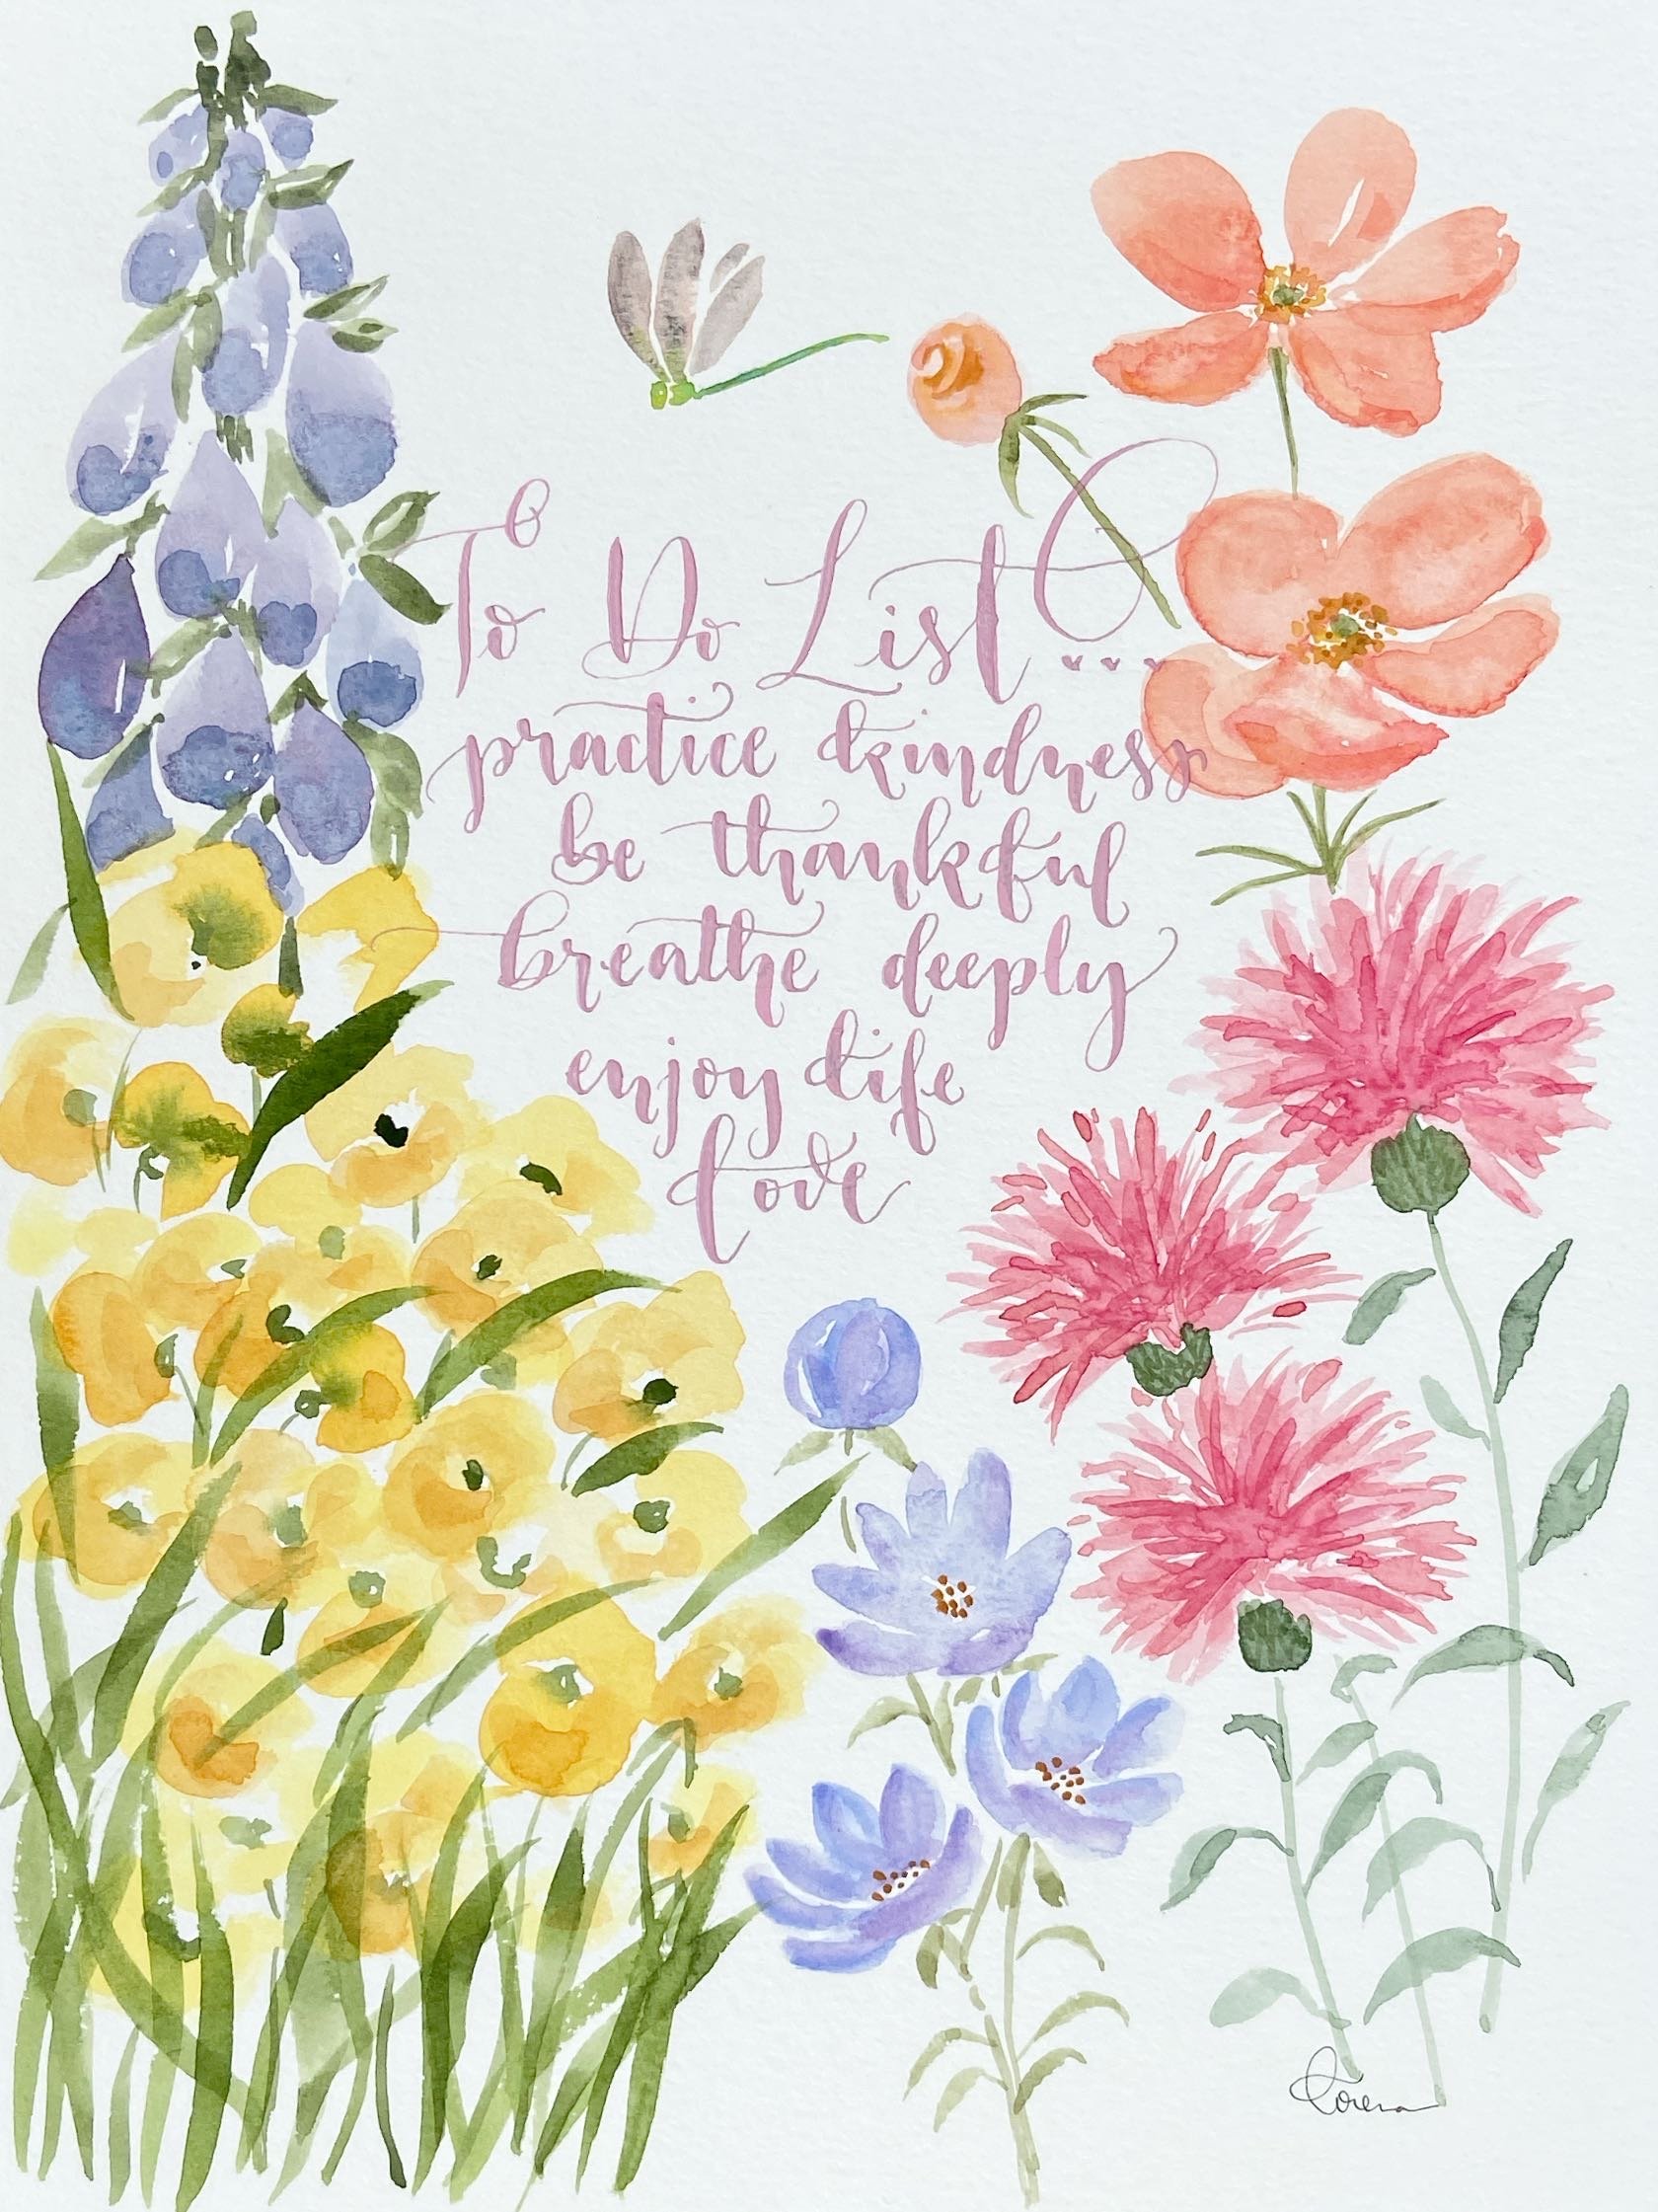 To Do List...
practice kindness
be thankful
breathe deeply
enjoy life
Love
Lorena